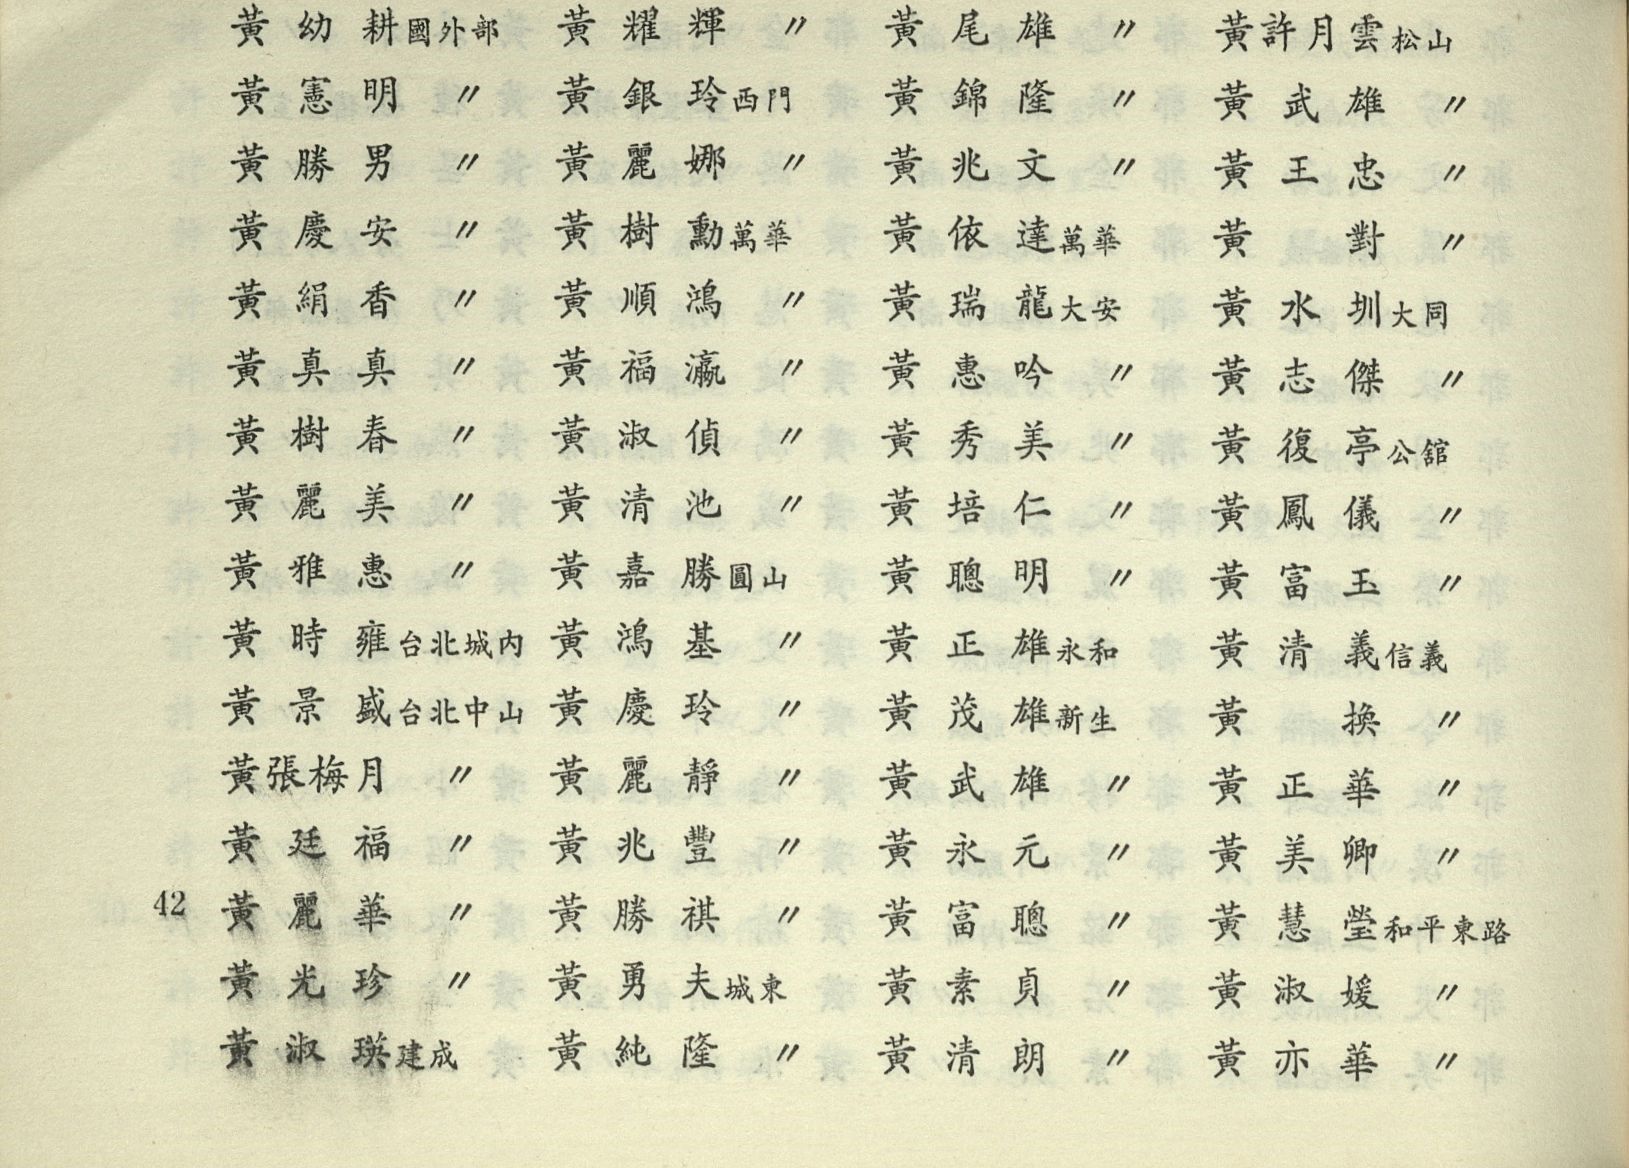 黃幼耕國外部 黃耀輝 〃 黃尾雄 〃 黃許月雲松山
黃憲明 〃 黃銀玲西門 黃錦隆 〃 黃武雄 〃
黃勝男 〃 黃麗娜 〃 黃兆文 〃 黃王忠 〃
黃慶安 〃 黃樹勳萬華 黃依達萬華 黃對 〃
黃絹香 〃 黃順鴻 〃 黃瑞龍大安 黃水圳大同
黃真真 〃 黃福瀛 〃 黃惠吟 〃 黃志傑 〃
黃樹春 〃 黃淑偵 〃 黃秀美 〃 黃復亭公舘
黃麗美 〃 黃清池 〃 黃培仁 〃 黃鳳儀 〃
黃雅惠 〃 黃嘉勝圓山 黃聰明 〃 黃富玉 〃
黃時雍台北城內 黃鴻基 〃 黃正雄永和 黃清義信義
黃景盛台北中山 黃慶玲 〃 黃茂雄新生 黃換 〃
黃張梅月 〃 黃麗靜 〃 黃武雄 〃 黃正華 〃
黃廷福 〃 黃兆豐 〃 黃永元 〃 黃美卿 〃
42 黃麗華 〃 黃勝祺 〃 黃富聰 〃 黃慧瑩和平東路
黃光珍 〃 黃勇夫城東 黃素貞 〃 黃淑媛 〃
黃淑瑛建成 黃純隆 〃 黃清朗 〃 黃亦華 〃